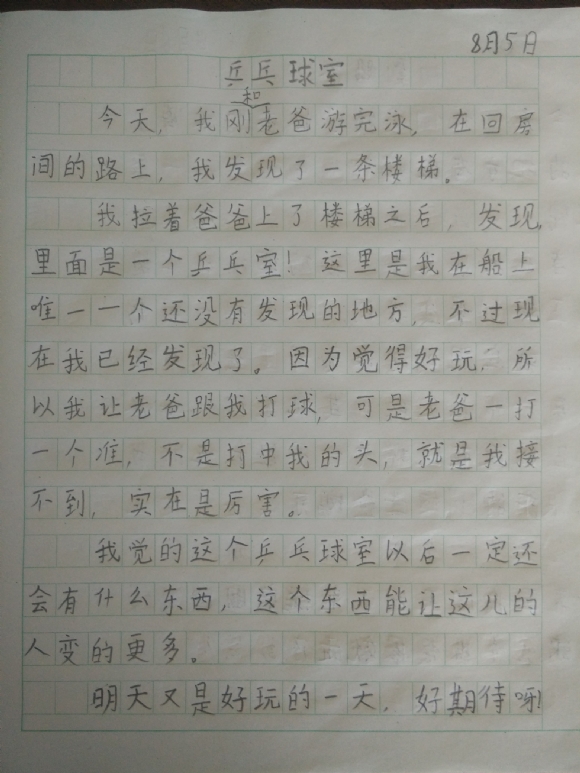 8月5日
乒乓球室
和
今天，我刚老爸游完泳，在回房
间的路上，我发现了一条楼梯。
我拉着爸爸上了楼梯之后，发现，
里面是一个乒乓室！这里是我在船上
唯一一个还没有发现的地方，不过现
在我已经发现了。因为觉得好玩，所
以我让老爸跟我打球，可是老爸一打
一个准，不是打中我的头，就是我接
不到，实在是厉害。
我觉的这个乒乓球室以后一定还
会有什么东西，这个东西能让这儿的
人变的更多。
明天又是好玩的一天，好期待呀！